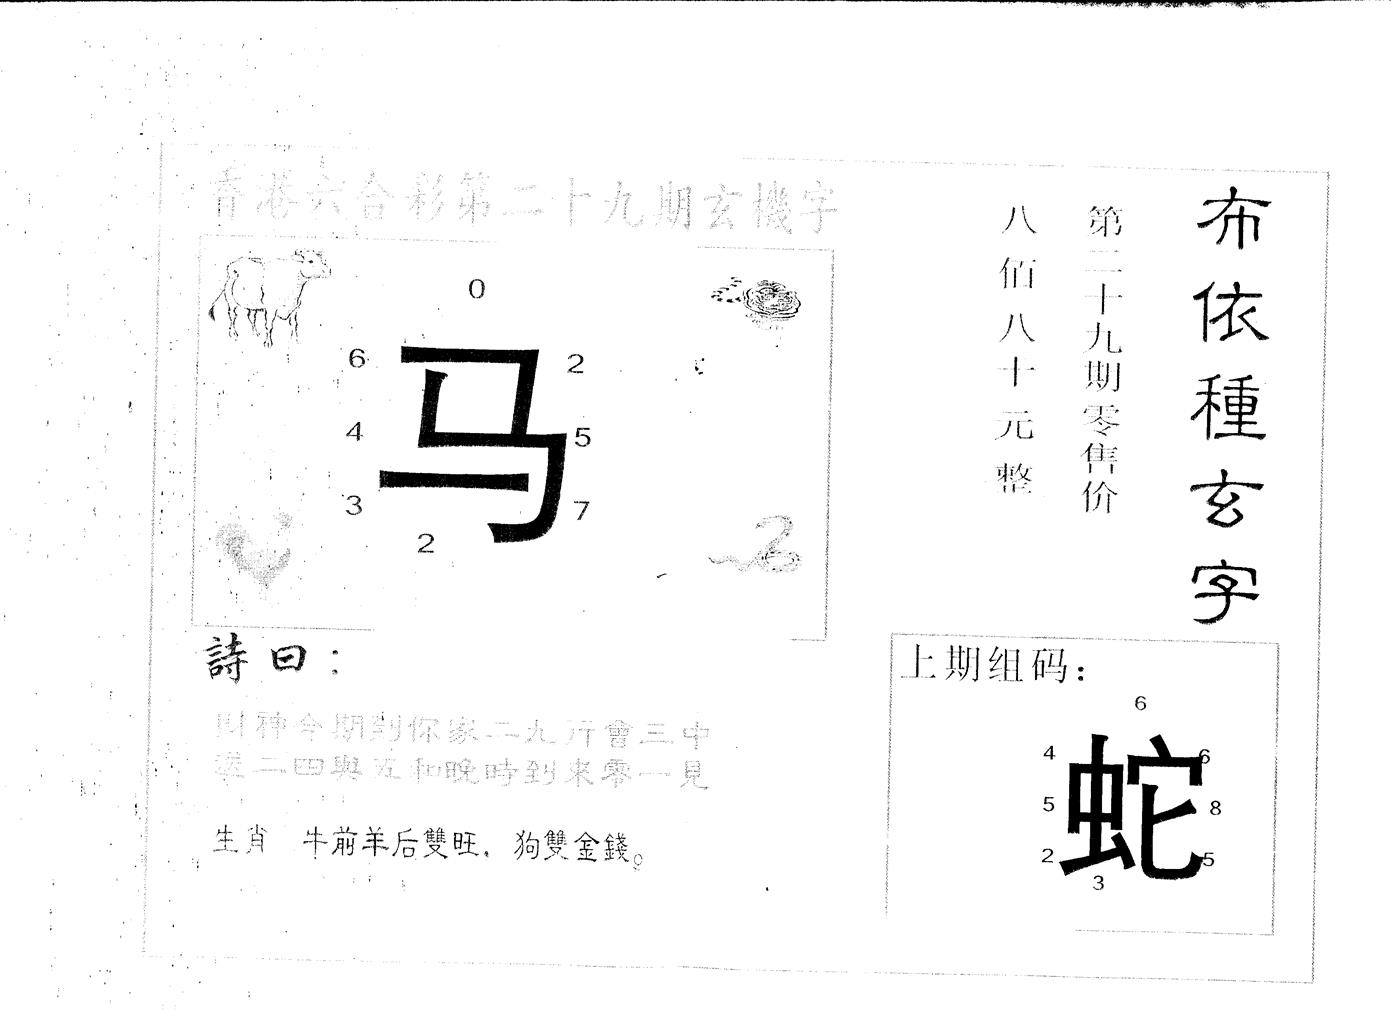 香港六合彩第二十九期玄機字
布依種玄字
第二十九期零售价
八佰八十元整
0
6
2
马
4
5
3
7
2
詩曰：
財神今期到你家二九行會三中
選二四與五和晚時到来零一見
生肖 牛前羊后雙旺，狗雙金錢。
上期组码：
6
4
6
蛇
5
8
2
5
3